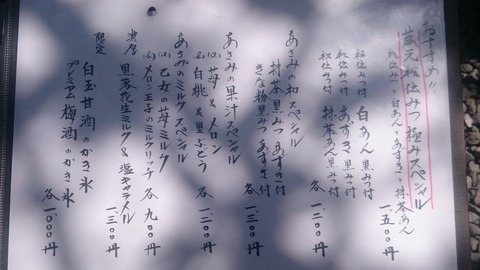 おすすめ!!
蔵元秘伝みつ 極みスペシャル
秘伝みつ・白あん・あずき・抹茶あん
一、五〇〇円
秘伝みつ付 白あん 黒みつ付
秘伝みつ付 あずき 黒みつ付
秘伝みつ付 抹茶あん 黒みつ付
各 一、二〇〇円
あさみの和スペシャル
抹茶黒みつ あずき付
きな粉黒みつ あずき付
各 一、三〇〇円
あさみの果汁スペシャル
苺 & メロン
白桃 & 黒ぶどう
各 一、二〇〇円
あさみのミルクスペシャル
乙女の苺ミルク
メロン王子のミルクリッチ
各 九〇〇円
濃厚 黒落花生ミルク & 塩キャラメル
一、三〇〇円
限定
白玉甘酒のかき氷
プレミアム梅酒のかき氷
各 一、〇〇〇円